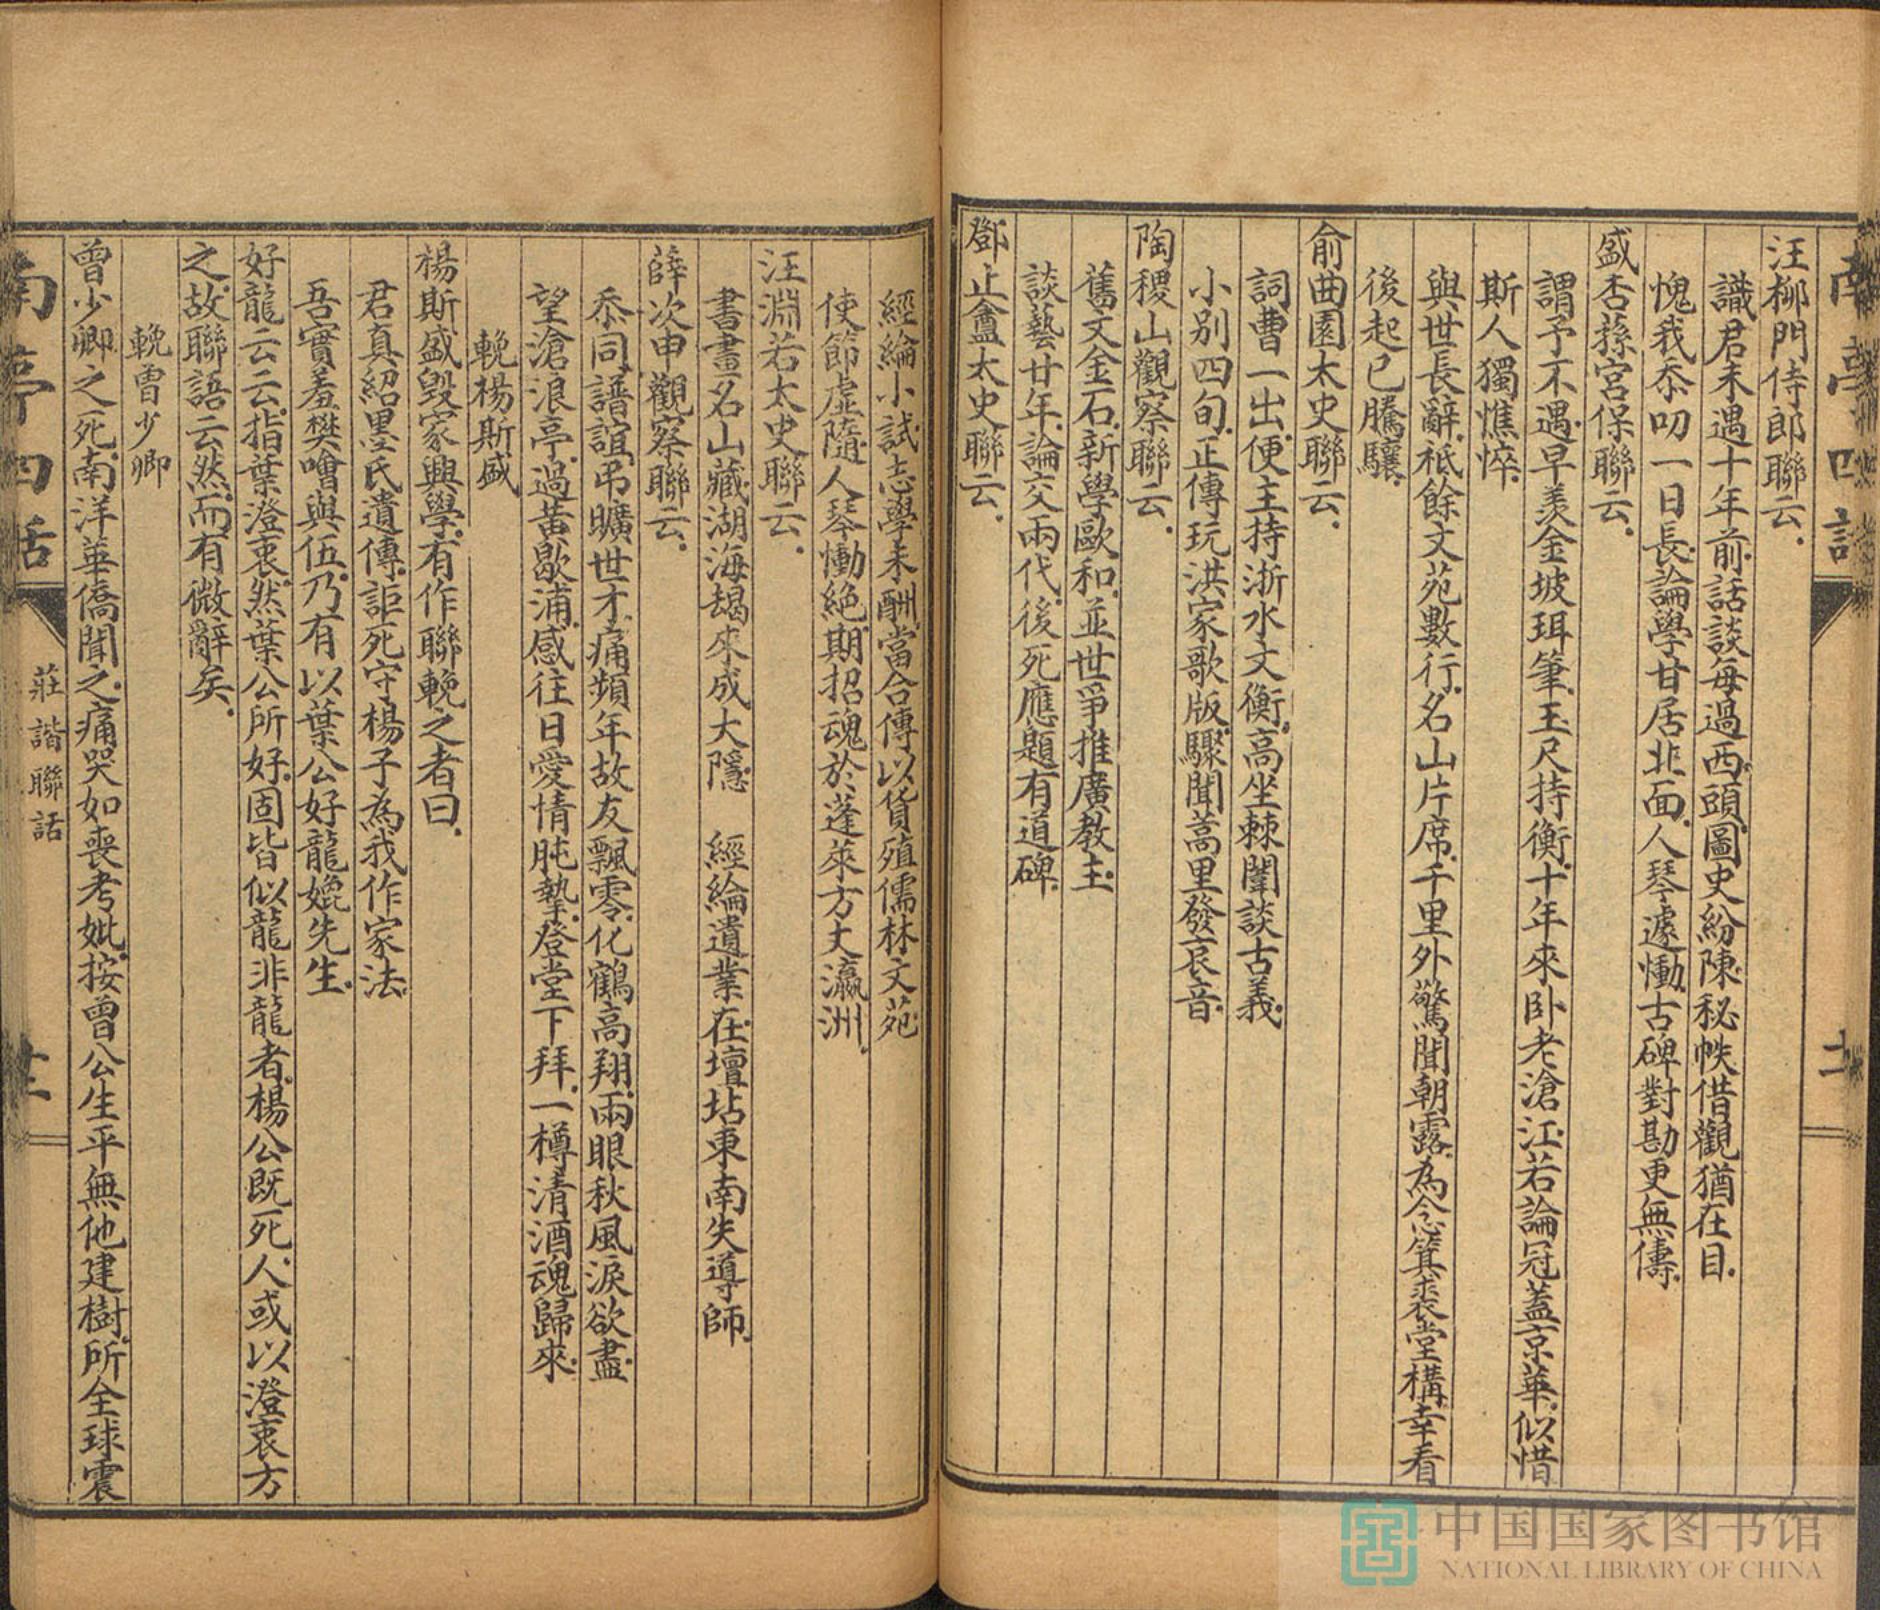 南亭四話
汪柳門侍郎聯云.
識君未遇十年前.話談每過西頭.圖史紛陳.秘帙借觀猶在目.
愧我忝叨一日長.論學甘居北面.人琴遽慟.古碑對勘更無儔.
盛杏蓀宮保聯云.
謂予不遇.早羨金坡珥筆.玉尺持衡.十年來卧老滄江.若論冠蓋京華.似惜
斯人獨憔悴.
與世長辭.祗餘文苑數行.名山片席.千里外驚聞朝露.為念箕裘堂構.幸看
後起已騰驤.
俞曲園太史聯云.
詞曹一出.便主持浙水文衡.高坐棘闈談古義.
小别四旬.正傳玩洪家歌版.驟聞蒿里發哀音.
陶稷山觀察聯云.
舊文金石.新學歐和.並世爭推廣教主.
談藝廿年.論交兩代.後死應題有道碑.
鄧止盫太史聯云.
經綸小試.志學未酬.當合傳以貨殖儒林文苑
使節虛隨.人琴慟絶.期招魂於蓬萊方丈瀛洲.
汪淵若太史聯云.
書畫名山藏.湖海朅來成大隱.　經綸遺業在.壇坫東南失導師.
薛次申觀察聯云.
忝同譜誼.弔曠世才.痛頻年故友飄零.化鶴高翔.兩眼秋風淚欲盡.
望滄浪亭.過黃歇浦.感往日愛情肫摯.登堂下拜.一樽清酒魂歸來.
輓楊斯盛
楊斯盛毀家興學.有作聯輓之者曰.
君真紹墨氏遺傳.詎死守楊子為我作家法.
吾實羞樊噲與伍.乃有以葉公好龍媲先生.
好龍云云.指葉澄衷.然葉公所好.固皆似龍非龍者.楊公既死.人或以澄衷方
之.故聯語云然.而有微辭矣.
輓曾少卿
曾少卿之死.南洋華僑聞之.痛哭如喪考妣.按曾公生平無他建樹.所全球震
南亭四話
莊諧聯話